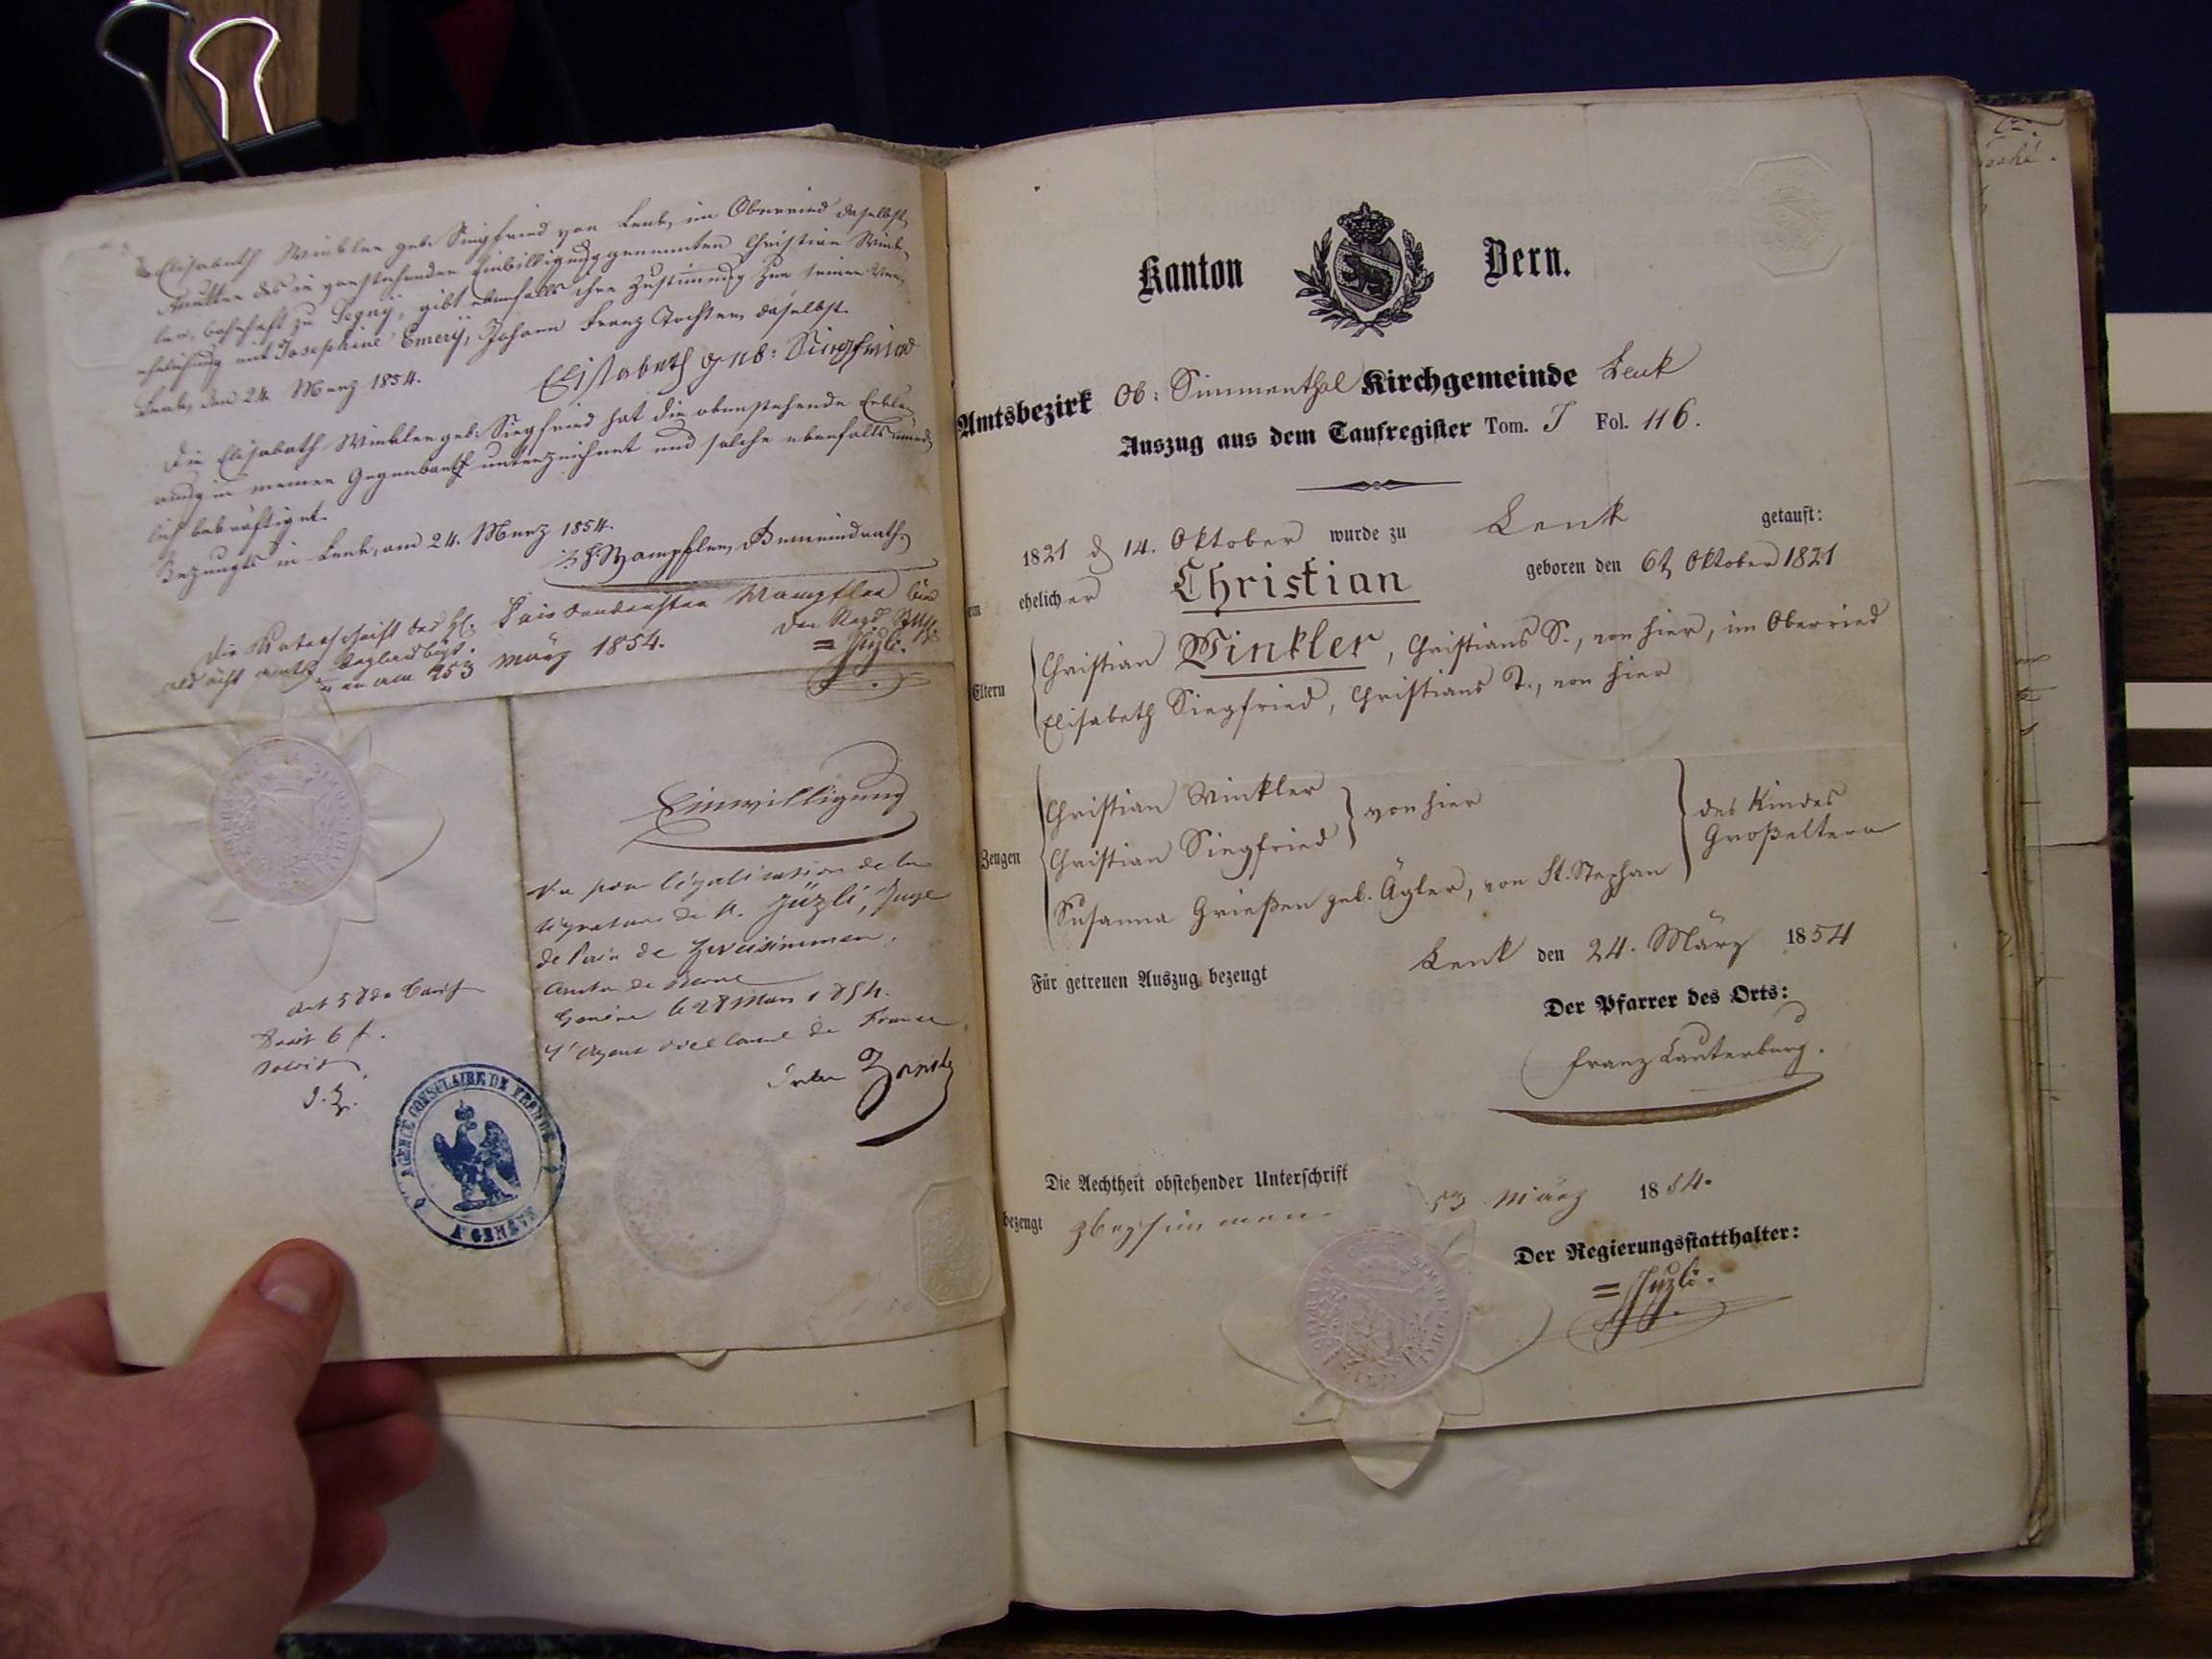 Elisabeth Winkler geb. Siegfried von Lenk, im Oberried daselbst,
Mutter des in vorstehender Einwilligung genannten Christian Wink-
ler, wohnhaft zu Segny, gibt ebenfalls ihre Zustimmung zur seiner Ver-
ehelichung mit Josephine Emerÿ, Johann Franz Tochter, daselbst.
Lenk, den 24. Merz 1854.
Elisabeth geb: Siegfried
Die Elisabeth Winkler geb. Siegfried hat die obenstehende Erklä-
rung in meiner Gegenwart unterzeichnet und solche ebenfalls münd-
lich bekräftiget.
Bezeugts in Lenk, am 24. Merz 1854.
Wampfler, Gemeindrath.
Die Unterschrift des Hr. Wampfler
als ächt
am 25 März 1854.
Der Regs Statth.
= Jüzli.
Einwilligung
Vu pour légalisation de la
signature de M. Jüzli, Juge
de Paix de Zweisimmen,
Canton de Berne
Genève le 28 Mars 1854.
L'Agent vice Consul de France
art 58 du Tarif
Droit 6 f.
AGENCE CONSULAIRE DE FRANCE
A GENÈVE
Kanton Bern.
Amtsbezirk Ob: Simmenthal Kirchgemeinde Lenk
Auszug aus dem Taufregister Tom. I Fol. 116.
1821 d 14. Oktober wurde zu Lenk getauft:
ein ehelicher Christian geboren den 6t Oktober 1821
Eltern
Christian Winkler, Christians S., von hier, im Oberried
Elisabeth Siegfried, Christians T., von hier
Zeugen
Christian Winkler
Christian Siegfried
von hier
Susanna Grießen geb. Ägler, von St. Stephan
des Kindes
Großeltern
Lenk den 24. März 1854
Für getreuen Auszug bezeugt
Der Pfarrer des Orts:
Franz Lauterburg.
Die Aechtheit obstehender Unterschrift
bezeugt März 1854.
Der Regierungsstatthalter:
= Jüzli.